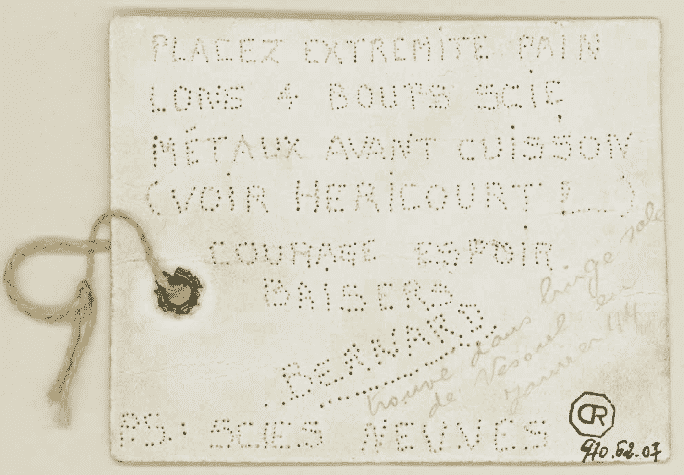 PLACEZ EXTREMITE PAIN
LONS 4 BOUTS SCIE
MÉTAUX AVANT CUISSON
(VOIR HERICOURT !...)
COURAGE ESPOIR
BAISERS
BERNARD.
trouvé dans linge sale
de Vesoul en
Janvier 44
PS: SCIES NEUVES
CR
970.62.07